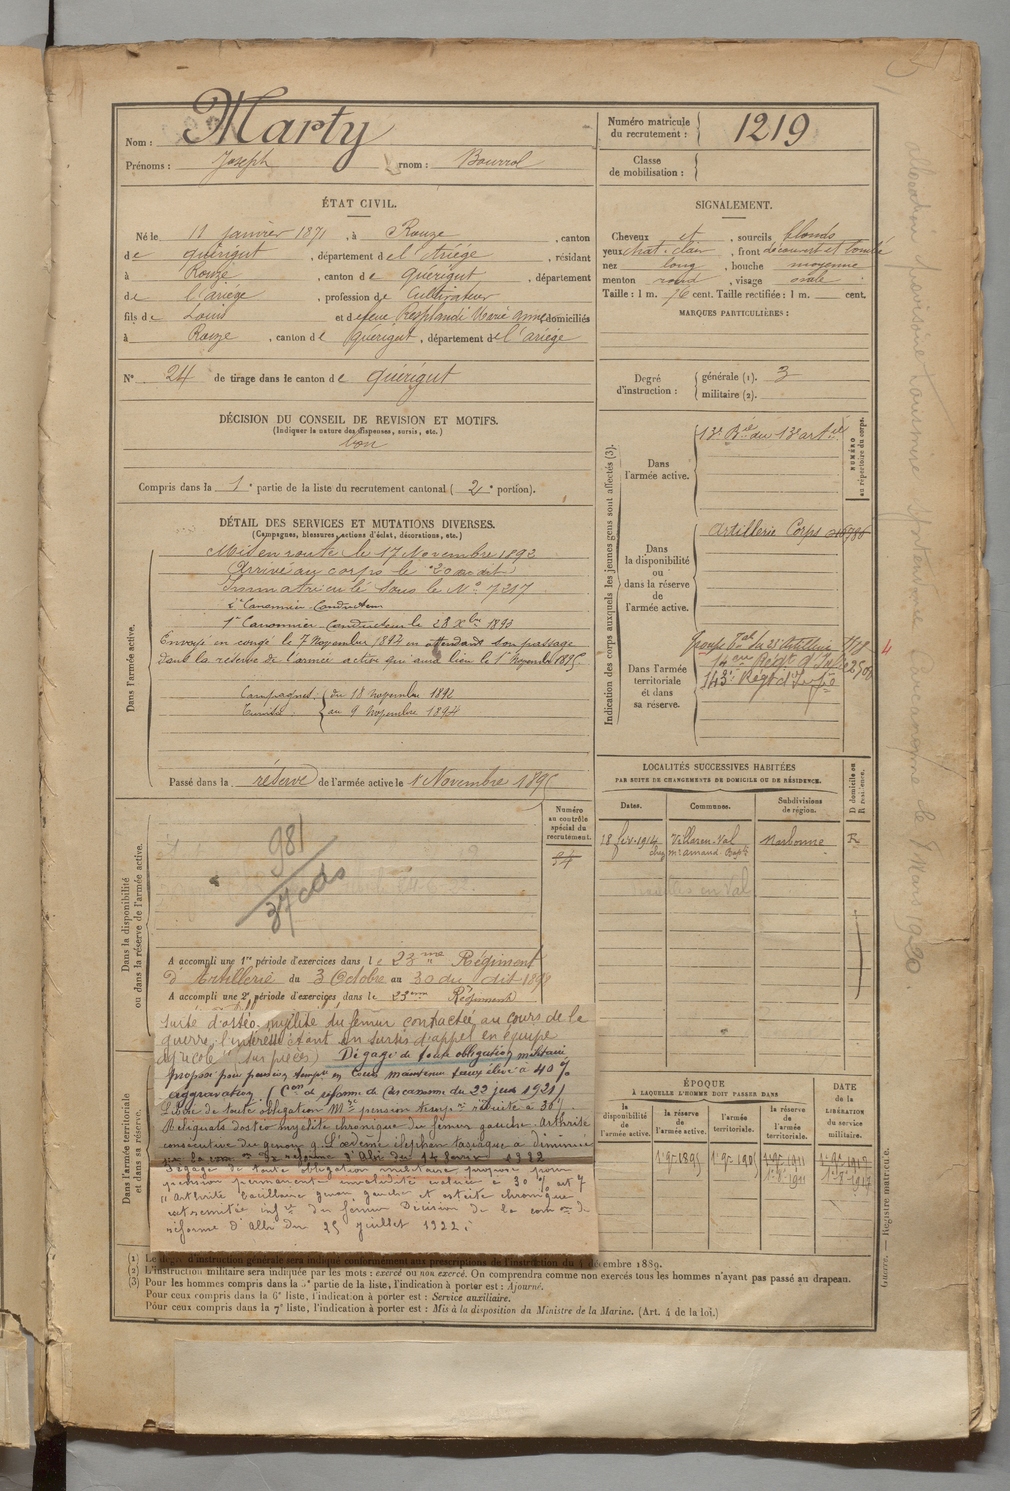 Nom : Marty
Prénoms : Joseph rnom : Bourrol
Numéro matricule du recrutement : 1219
Classe de mobilisation :
ÉTAT CIVIL.
Né le 11 janvier 1871, à Rouze, canton
de quérigut, département de l'Ariége, résidant
à Rouze, canton de Quérigut, département
de l'ariège, profession de Cultivateur
fils de Louis et de feue Resplandi Marie Anne domiciliés
à Rouze, canton de quérigut, département de l'ariége
N° 24 de tirage dans le canton de quérigut
DÉCISION DU CONSEIL DE REVISION ET MOTIFS.
(Indiquer la nature des dispenses, sursis, etc.)
bon
Compris dans la 1e partie de la liste du recrutement cantonal (2e portion).
DÉTAIL DES SERVICES ET MUTATIONS DIVERSES.
(Campagnes, blessures, actions d'éclat, décorations, etc.)
Dans l'armée active.
Mis en route le 17 Novembre 1892
Arrivé au corps le 20 du dit
Immatriculé sous le N° 7217
2e Canonnier Conducteur
1er Canonnier Conducteur le 28 Xbre 1893
Envoyé en congé le 7 Novembre 1892 en attendant son passage
dans la réserve de l'armée active qui aura lieu le 1er Novembre 1895.
Campagnes : du 18 novembre 1892
Tunisie au 9 Novembre 1894
Passé dans la réserve de l'armée active le 1 Novembre 1895
SIGNALEMENT.
Cheveux et, sourcils blonds
yeux chat. clair, front découvert et bombé
nez long, bouche moyenne
menton rond, visage ovale
Taille : 1 m. 76 cent. Taille rectifiée : 1 m. cent.
MARQUES PARTICULIÈRES :
Degré d'instruction : générale (1). 3
militaire (2).
Indication des corps auxquels les jeunes gens sont affectés (3).
NUMÉRO au répertoire du corps.
Dans l'armée active.
13e Bie du 13e artie
Dans la disponibilité ou dans la réserve de l'armée active.
Artillerie Corps
Dans l'armée territoriale et dans sa réserve.
143e Régt d'Infie
LOCALITÉS SUCCESSIVES HABITÉES
PAR SUITE DE CHANGEMENTS DE DOMICILE OU DE RÉSIDENCE.
D domicile ou R résidence.
Dates. Communes. Subdivisions de région.
18 fév. 1914 Villasen-Val Narbonne R
chez Mr Arnaud
Dans la disponibilité ou dans la réserve de l'armée active.
Numéro au contrôle spécial du recrutement.
94
981
37 cds
A accompli une 1re période d'exercices dans le 23me Régiment
d'Artillerie du 3 Octobre au 30 du dit 1898
A accompli une 2e période d'exercices dans le 23eme Régiment
Dans l'armée territoriale et dans sa réserve.
suite d'ostéo-myélite du fémur contractée au cours de la
guerre, l'intéressé étant en sursis d'appel en équipe
agricole sur pièces) Dégagé de toute obligation militaire
proposé pour pension tempre en Cours maintenu taux élevé à 40 %
aggravation. (Con de réforme de Carcassonne du 22 juin 1921)
Libéré de toute obligation Mre pension tempre réduite à 30 %
Reliquats d'ostéo myélite chronique du fémur gauche. Arthrite
consécutive du genou g. L'œdème éléphantiasique a diminué
par la com. de réforme d'Albi du 14 février 1922
Dégagé de toute obligation militaire proposé pour
pension permanente invalidité évaluée à 30 %
"Arthrite bacillaire genou gauche et ostéite chronique
extrémité infre du fémur Décision de la comon de
réforme d'Albi du 25 juillet 1922.
ÉPOQUE
À LAQUELLE L'HOMME DOIT PASSER DANS
la disponibilité de l'armée active.
la réserve de l'armée active.
l'armée territoriale.
la réserve de l'armée territoriale.
DATE de la LIBÉRATION du service militaire.
1er 9bre 1895
(1) Le degré d'instruction générale sera indiqué conformément aux prescriptions de l'instruction du 4 décembre 1889.
(2) L'instruction militaire sera indiquée par les mots : exercé ou non exercé. On comprendra comme non exercés tous les hommes n'ayant pas passé au drapeau.
(3) Pour les hommes compris dans la 5e partie de la liste, l'indication à porter est : Ajourné.
Pour ceux compris dans la 6e liste, l'indication à porter est : Service auxiliaire.
Pour ceux compris dans la 7e liste, l'indication à porter est : Mis à la disposition du Ministre de la Marine. (Art. 4 de la loi.)
Guerre. — Registre matricule.